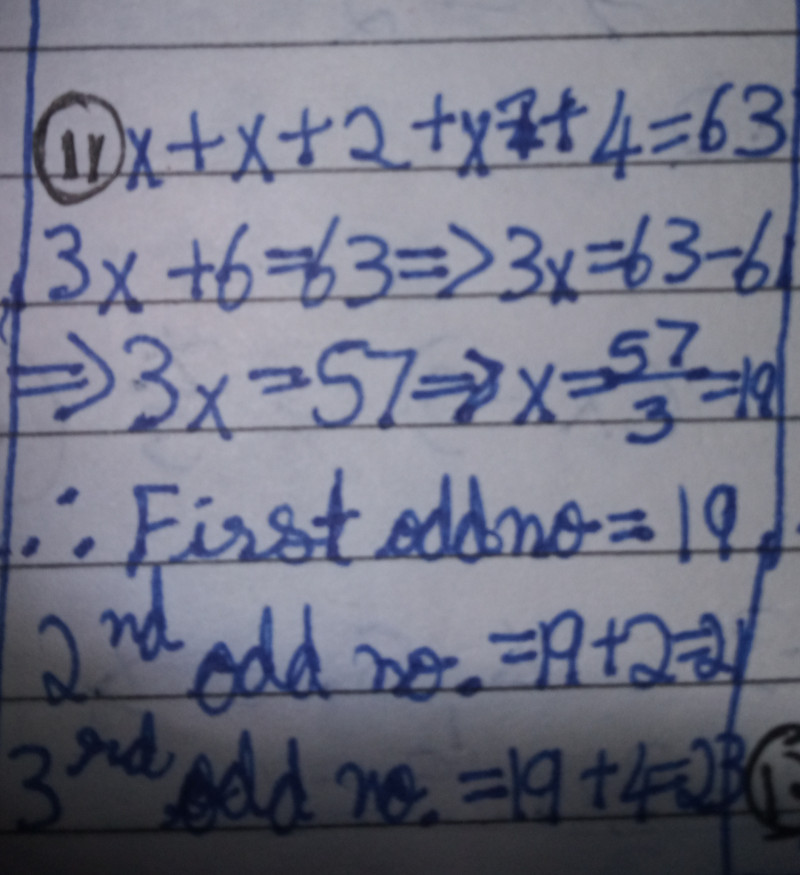 11 x+x+2+x+4=63
3x+6=63=>3x=63-6
=>3x=57=>x=57/3=19
∴ First odd no=19.
2nd odd no.=19+2=21
3rd odd no.=19+4=23